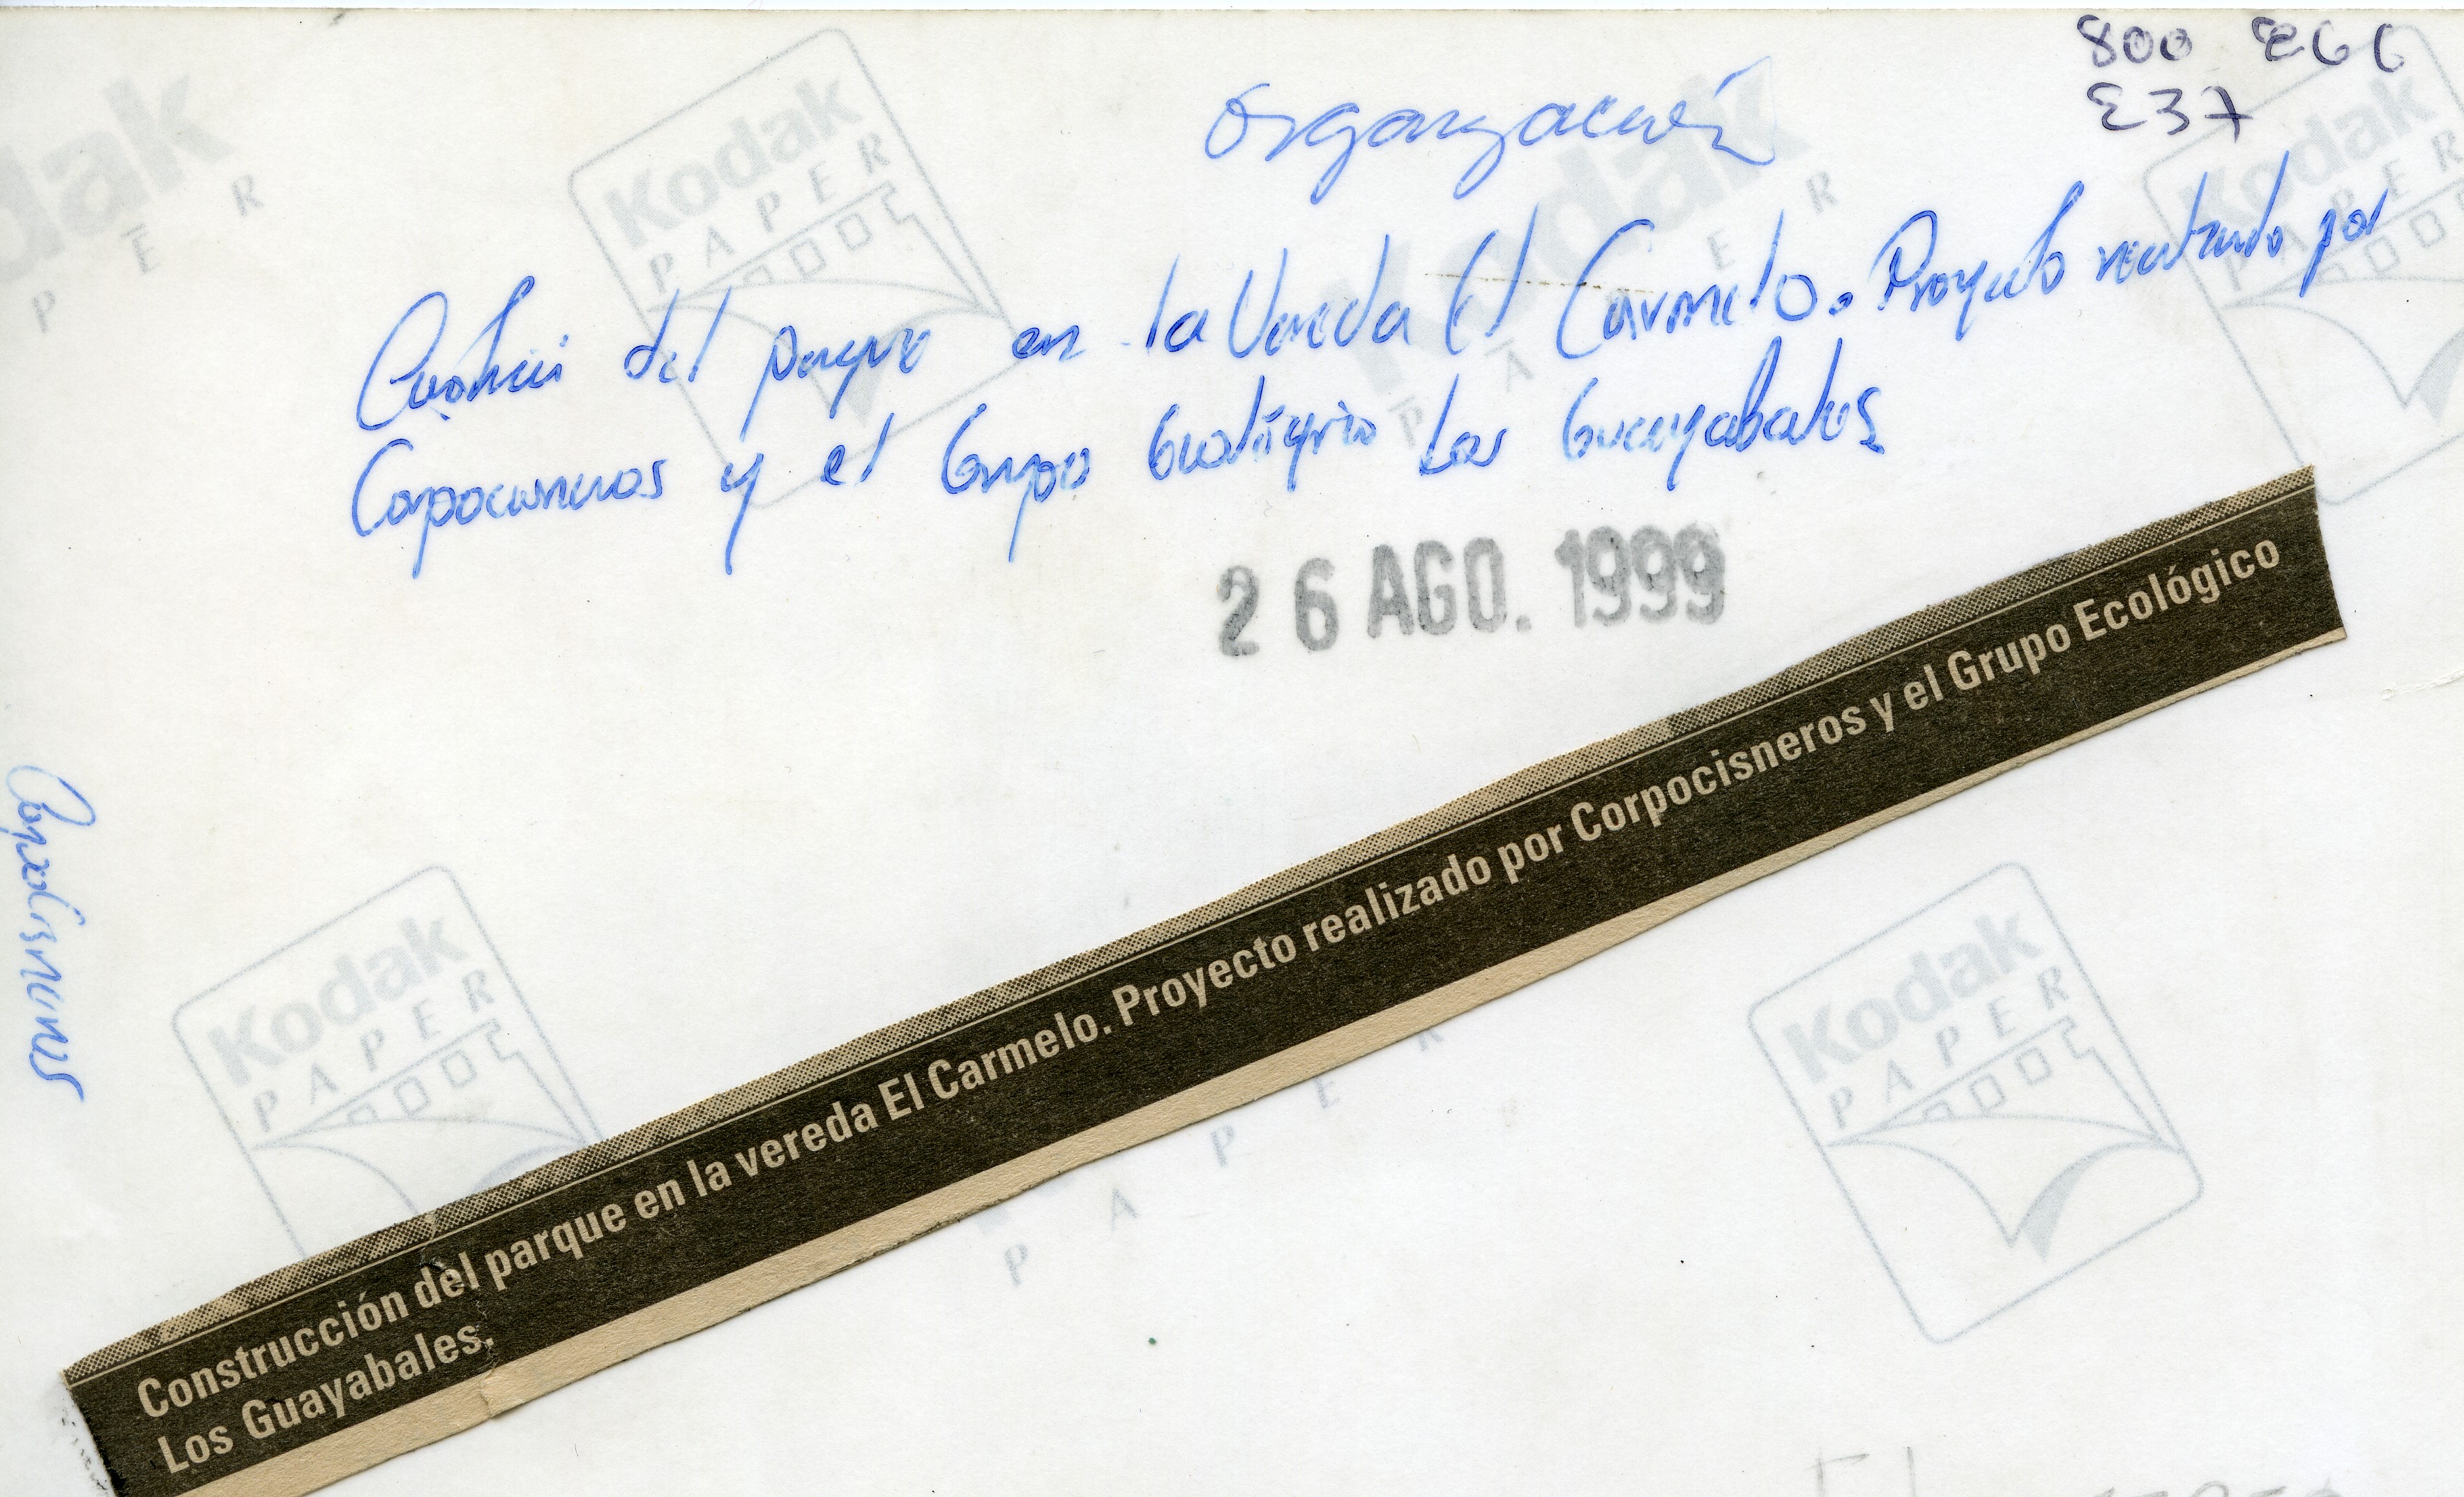 800
E37
Organización
del parque en la Vereda El Carmelo. Proyecto realizado por
Corpocisneros y el Grupo Ecológico Los Guayabales
26 AGO. 1999
Construcción del parque en la vereda El Carmelo. Proyecto realizado por Corpocisneros y el Grupo Ecológico
Los Guayabales.
Corpocisneros
Kodak
PAPER
Kodak
PAPER
Kodak
PAPER
Kodak
PAPER
Kodak
PAPER